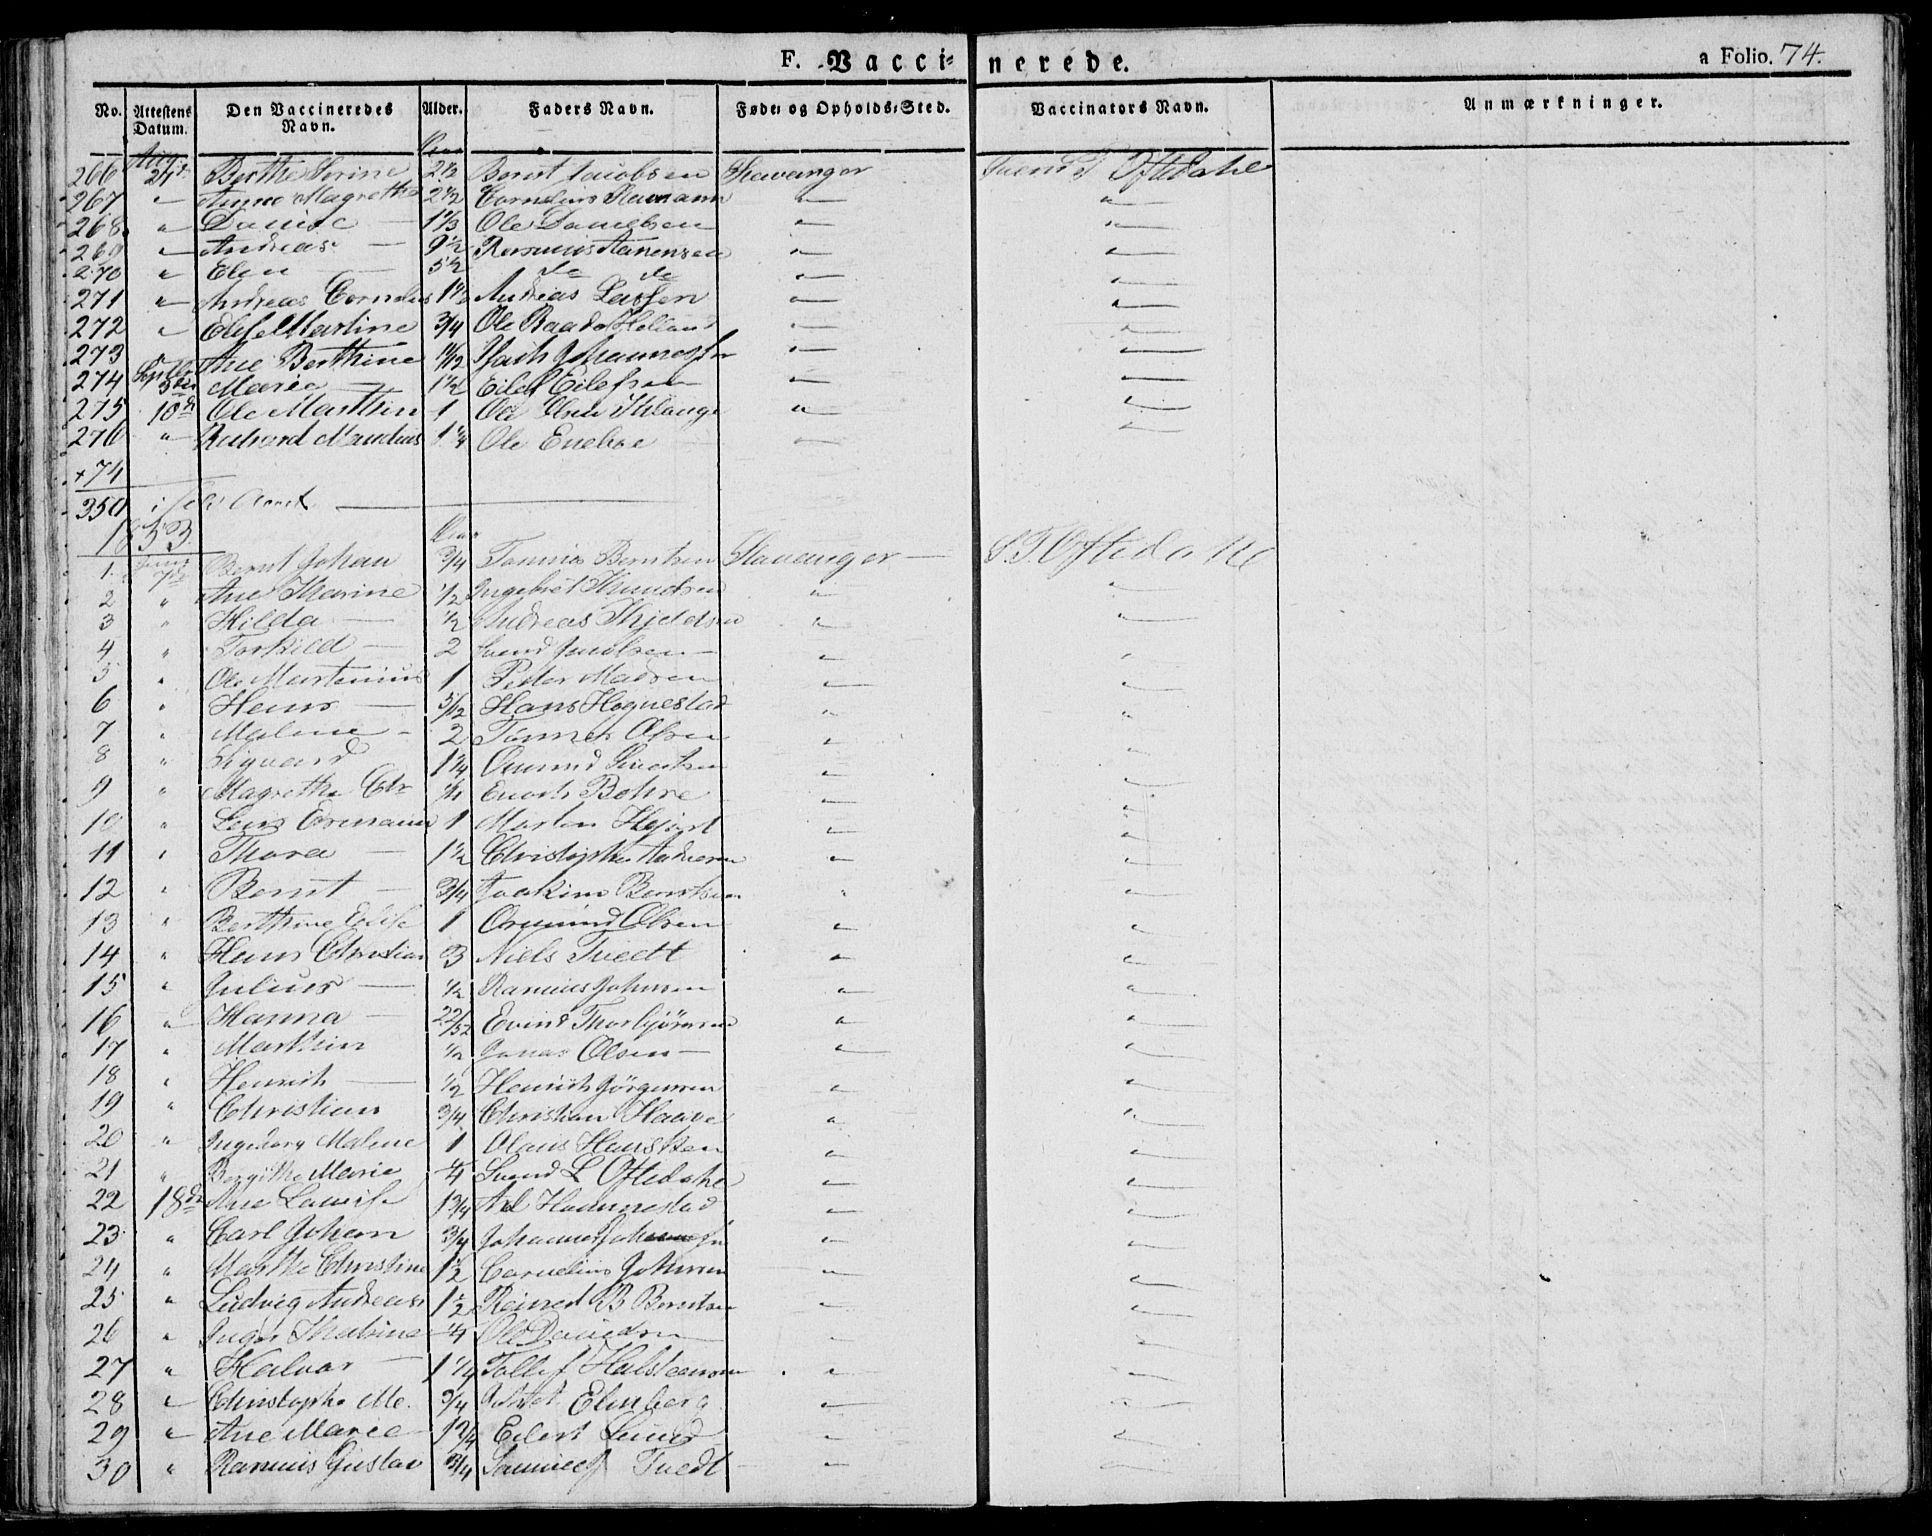 F. Vaccinerede. a Folio. 74.
No. Attestens Datum. Den Vaccineredes Navn. Alder. Faders Navn. Føde- og Opholds-Sted. Vaccinators Navn. Anmærkninger.
Aug. Aar
266 24 Berthe Serine 2 1/2 Bernt Jacobsen Stavanger Svend T Oftedahl
267 " Anne Magrethe 2 1/2 Cornelius " "
268 " 1 1/3 Ole Danielsen " "
269 " Andreas 9 1/2 Rasmus Aanensen " "
270 " Elen 5 1/2 do do " "
271 " Andreas Cornelius 1 1/2 Andreas Larsen " "
272 " Martine 3/4 Ole " "
273 " Ane Berthine Johannessen " "
274 Septbr 5te Maria 1 1/2 Eilef Eilefsen " "
275 10de Ole Marthin 1 Ole Olsen " "
276 " Maudius 1 1/4 Ole Eneboe " "
+74
350 i Aaret
1853 Aar
1. Juni 7de Bernt Johan 3/4 Tønnes Berntsen Stavanger S T Oftedahl
2 " Ane Marine 1/2 Ingebret Knudsen " "
3 " Hilda 1/2 Andreas Kjeldsen " "
4 " Torkild 2 Svend Jacobsen " "
5 " Ole Martinius 1 Peder Madsen " "
6 " Hans 5/12 Hans Hognestad " "
7 " Malene 2 Tønnes Olsen " "
8 " Sigvard 1 1/4 Omund " "
9 " Magrethe Enoch Bohre " "
10 " Lars Ermann 1 Martin Hjort " "
11 " Thora 1 1/2 Christopher Andersen " "
12 " Bernt 3/4 Joakim Berntsen " "
13 " Berthine Elise 1 Omund Olsen " "
14 " Hans Christian 3 Niels Tvedt " "
15 " Julius 1/2 Rasmus Johnsen " "
16 " Hanna 22/52 Evind Thorbjørnsen " "
17 " Marthin 1/2 Jonas Olsen " "
18 " Henrich 1/2 Henrich Jørgensen " "
19 " Christian 3/4 Christian Haave " "
20 " Ingeborg Malene 1 Olaus Hansen " "
21 " Bergithe Marie Svend L Oftedahl " "
22 18de Ane Lovise 1 3/4 " "
23 " Carl Johan 3/4 Johannes Johannesen " "
24 " Marthe Christine 1 1/2 Cornelius Johnsen " "
25 " Ludvig Andreas 1 1/2 Reinert B Berntsen " "
26 " Inger Ole Davidsen " "
27 " Halvor 1 1/4 Tollef Halstensen " "
28 " Christophe Me. 3/4 Elmberg " "
29 " Ane Marie 1 2/4 Eilert Lund " "
30 " Rasmus Gustav 3/4 Tvedt " "